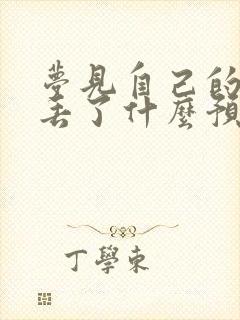 夢見自己的
丟了什麼預
丁學東